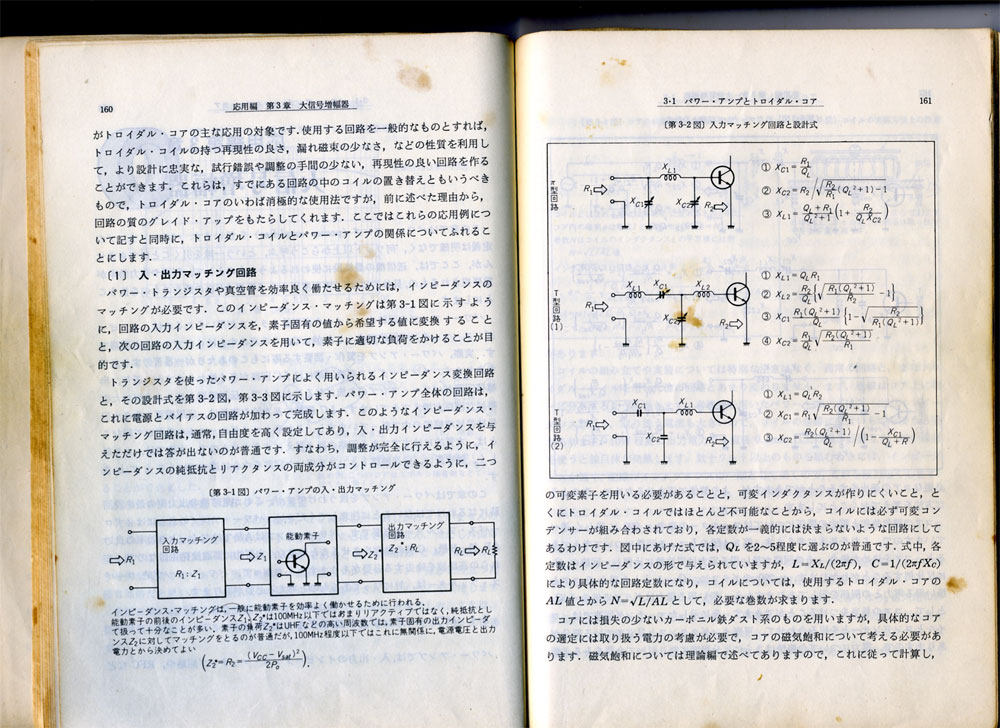 160
応用編 第3章 大信号増幅器
がトロイダル・コアの主な応用の対象です.使用する回路を一般的なものとすれば,
トロイダル・コイルの持つ再現性の良さ,漏れ磁束の少なさ,などの性質を利用し
て,より設計に忠実な,試行錯誤や調整の手間の少ない,再現性の良い回路を作る
ことができます.これらは,すでにある回路の中のコイルの置き替えともいうべき
もので,トロイダル・コアのいわば消極的な使用法ですが,前に述べた理由から,
回路の質のグレイド・アップをもたらしてくれます.ここではこれらの応用例につ
いて記すと同時に,トロイダル・コイルとパワー・アンプの関係についてふれるこ
とにします.
〔1〕 入・出力マッチング回路
パワー・トランジスタや真空管を効率良く働たせるためには,インピーダンスの
マッチングが必要です.このインピーダンス・マッチングは第3-1図に示すよう
に,回路の入力インピーダンスを,素子固有の値から希望する値に変換すること
と,次の回路の入力インピーダンスを用いて,素子に適切な負荷をかけることが目
的です.
トランジスタを使ったパワー・アンプによく用いられるインピーダンス変換回路
と,その設計式を第3-2図,第3-3図に示します.パワー・アンプ全体の回路は,
これに電源とバイアスの回路が加わって完成します.このようなインピーダンス・
マッチング回路は,通常,自由度を高く設定してあり,入・出力インピーダンスを与
えただけでは答が出ないのが普通です.すなわち,調整が完全に行えるように,イ
ンピーダンスの純抵抗とリアクタンスの両成分がコントロールできるように,二つ
〔第3-1図〕パワー・アンプの入・出力マッチング
入力マッチング
回路
R₁:Z₁
能動素子
出力マッチング
回路
Z₂*:RL
R₁
Z₁
Z₂*
RL
RL
インピーダンス・マッチングは,一般に能動素子を効率よく働かせるために行われる.
能動素子の前後のインピーダンスZ₁,Z₂*は100MHz以下ではあまりリアクティブではなく,純抵抗とし
て扱って十分なことが多い.素子の負荷Z₂*はUHFなどの高い周波数では,素子固有の出力インピーダ
ンスZ₂に対してマッチングをとるのが普通だが,100MHz程度以下ではこれに無関係に,電源電圧と出力
電力とから決めてよい
(Z₂*=R₂=(VCC−Vsat)²/2P₀).
3·1 パワー・アンプとトロイダル・コア
161
〔第3-2図〕入力マッチング回路と設計式
π型回路
R₁
XL1
XC1
XC2
R₂
① XC1=R₁/QL
② XC2=R₂√(R₂/R₁(QL²+1)−1
③ XL1=QL+R₁/QL²+1(1+R₂/QLXC2)
T型回路(1)
R₁
XL1
XC1
XL2
XC2
R₂
① XL1=QLR₁
② XL2=R₂/QL{√(R₁(QL²+1)/R₂)−1}
③ XC1=R₁(QL²+1)/QL{1−√(R₂/R₁(QL²+1))}
④ XC2=R₁/QL√(R₂(QL²+1)/R₁)
T型回路(2)
R₁
XC1
XL1
XC2
R₂
① XL1=QLR₂
② XC1=R₁√(R₂(QL²+1)/R₁−1)
③ XC2=R₂(QL²+1)/QL/(1−XC1/QL+R)
の可変素子を用いる必要があることと,可変インダクタンスが作りにくいこと,と
くにトロイダル・コイルではほとんど不可能なことから,コイルには必ず可変コン
デンサーが組み合わされており,各定数が一義的には決まらないような回路にして
あるわけです.図中にあげた式では,QLを2〜5程度に選ぶのが普通です.式中,各
定数はインピーダンスの形で与えられていますが,L=XL/(2πf),C=1/(2πfXC)
により具体的な回路定数になり,コイルについては,使用するトロイダル・コアの
AL値とからN=√L/ALとして,必要な巻数が求まります.
コアには損失の少ないカーボニル鉄ダスト系のものを用いますが,具体的なコア
の選定には取り扱う電力の考慮が必要で,コアの磁気飽和について考える必要があ
ります.磁気飽和については理論編で述べてありますので,これに従って計算し,